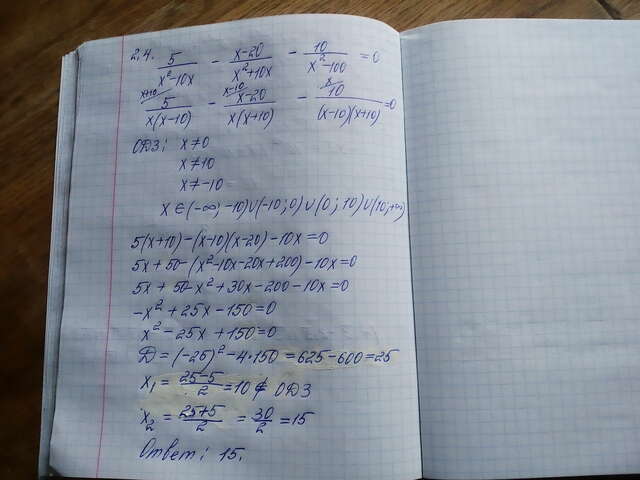 2.4. 5/(x²-10x) - (x-20)/(x²+10x) - 10/(x²-100) = 0
x+10/ 5/(x(x-10)) - x-10/ (x-20)/(x(x+10)) - x/ 10/((x-10)(x+10)) = 0
ОДЗ: x≠0
x≠10
x≠-10
x∈(-∞;-10)∪(-10;0)∪(0;10)∪(10;+∞)
5(x+10)-(x-10)(x-20)-10x=0
5x+50-(x²-10x-20x+200)-10x=0
5x+50-x²+30x-200-10x=0
-x²+25x-150=0
x²-25x+150=0
D=(-25)²-4·150=625-600=25
x₁=(25-5)/2=10∉ОДЗ
x₂=(25+5)/2=30/2=15
Ответ: 15.